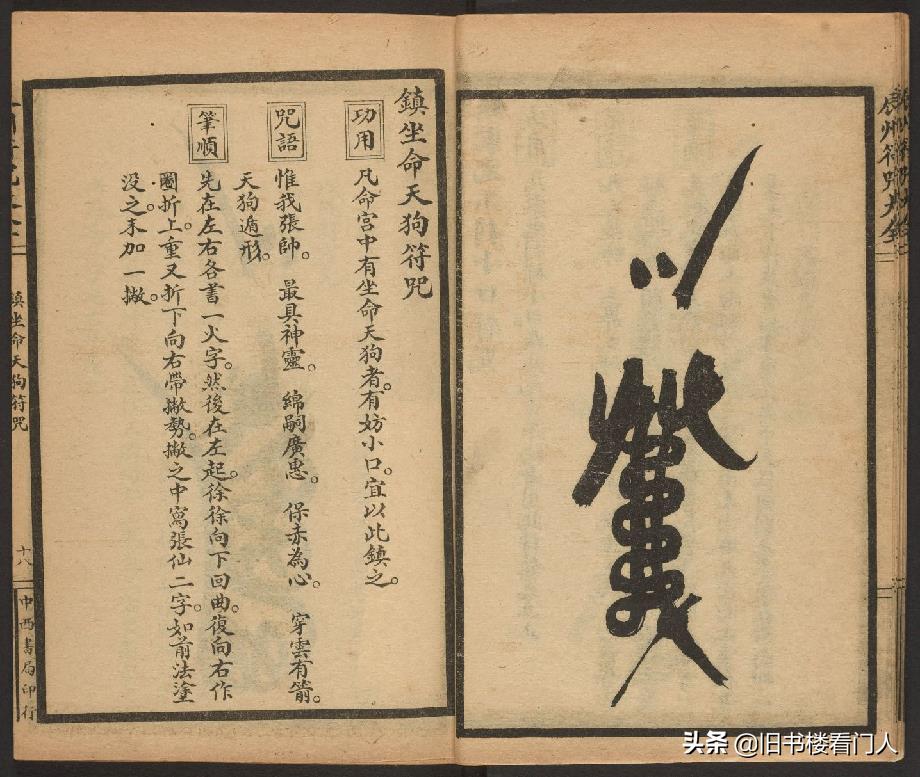 鎮坐命天狗符咒
功用
凡命宮中有坐命天狗者。有妨小口。宜以此鎮之。
咒語
惟我張帥。最具神靈。綿嗣廣惠。保赤為心。穿雲有箭。
天狗遁形。
筆順
先在左右各書一火字。然後在左起。徐徐向下回曲。復向右作
圈折上。重又折下向右帶撇勢。撇之中寫張仙二字。如前法塗
没之。末加一撇。
鎮坐命天狗符咒
十八
中西書局印行
符咒大全
头条 @旧书楼看门人